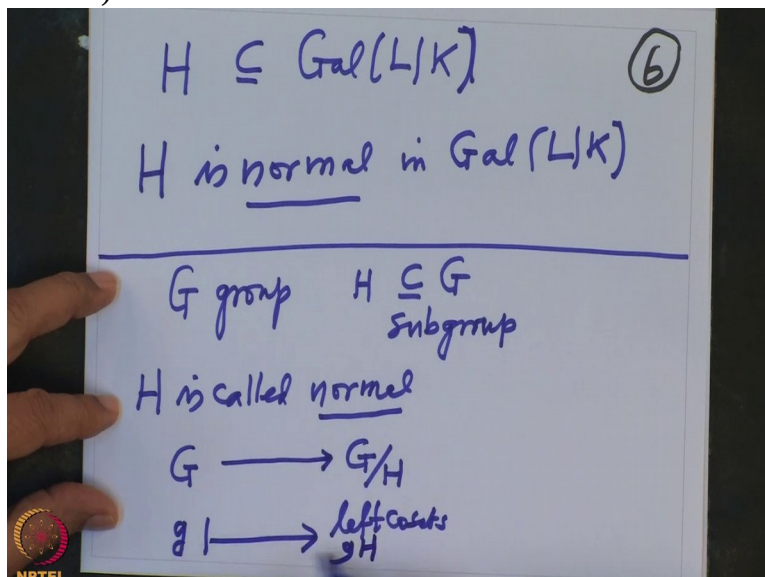 H ⊆ Gal(L|K)
6
H is normal in Gal(L|K)
G group H ⊆ G
subgroup
H is called normal
G ⟶ G/H
left cosets
g ⟼ gH
NPTEL